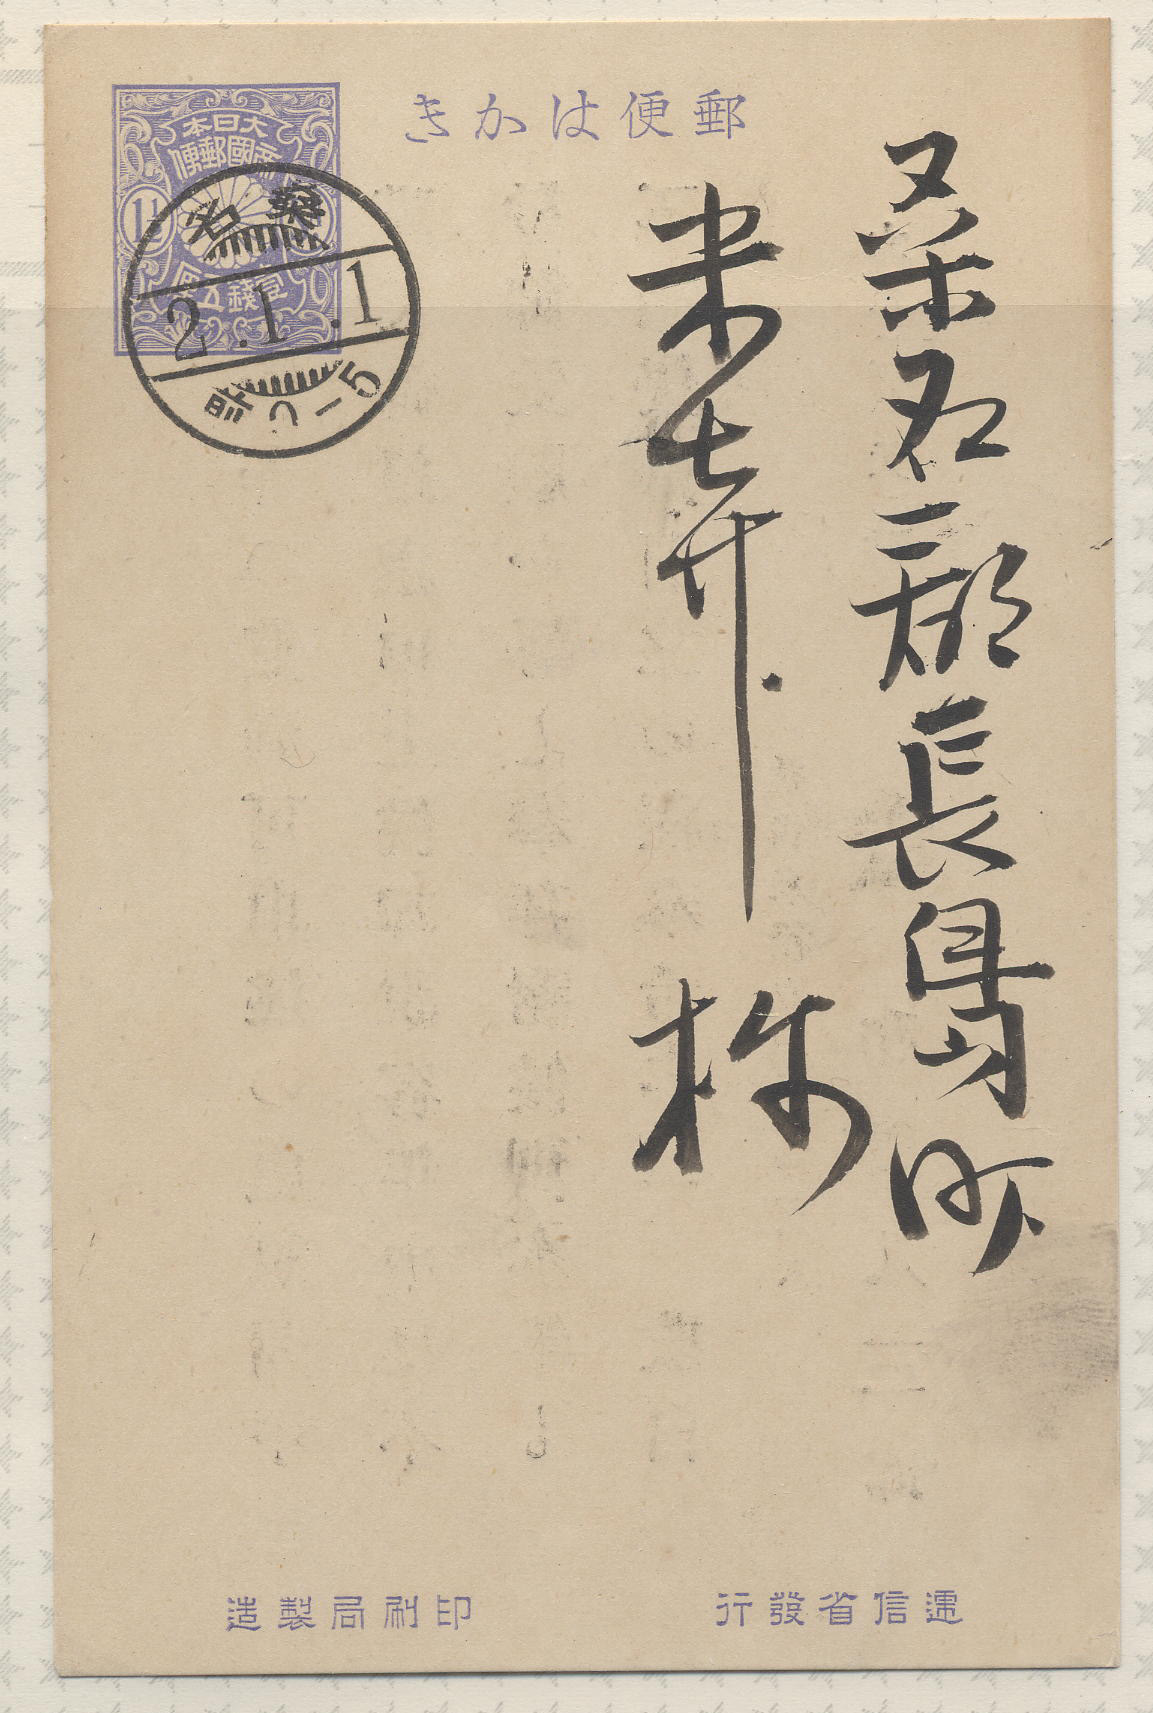 郵便はかき
大日本
帝國郵便
1½
壹錢五厘
桑名
2.1.1
前2-5
桑名郡長島町
様
遞信省發行
印刷局製造